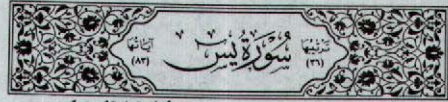 ترتيبها
(٣٦)
سُورَةُ يٰسٓ
آياتها
(٨٣)